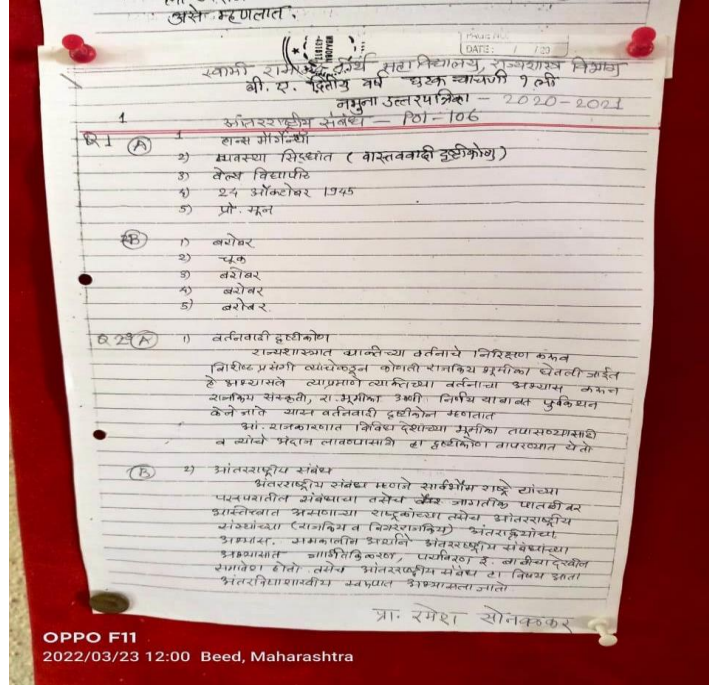 असे म्हणतात.
DATE: / /20
स्वामी महाविद्यालय, राज्यशास्त्र विभाग
बी. ए. द्वितीय वर्ष घटक चाचणी १ ली
नमुना उत्तरपत्रिका - 2020-2021
1 आंतरराष्ट्रीय संबंध - POI-106
Q1 (A) 1 हान्स मॉर्गेन्थॉ
2) व्यवस्था सिद्धांत (वास्तववादी दृष्टीकोण)
3) वेल्स विद्यापीठ
4) 24 ऑक्टोबर 1945
5) प्रो. मून
(B) 1) बरोबर
2) चूक
3) बरोबर
4) बरोबर
5) बरोबर
Q 2 (A) 1) वर्तनवादी दृष्टीकोण
राज्यशास्त्रात व्यक्तिच्या वर्तनाचे निरिक्षण करून
विशिष्ट प्रसंगी त्यांचेकडून कोणती राजकिय भूमिका घेतली जाईल
हे अभ्यासले त्याप्रमाणे व्यक्तिच्या वर्तनाचा अभ्यास करून
राजकिय संस्कृती, रा. भूमिका निर्णय याबाबत पुर्वकथन
केले जाते यास वर्तनवादी दृष्टीकोन म्हणतात
आं. राजकारणात विविध देशांच्या भूमिका तपासण्यासाठी
व त्यांचे अंदाज लावण्यासाठी हा दृष्टीकोण वापरण्यात येतो
(B) 2) आंतरराष्ट्रीय संबंध
अंतरराष्ट्रीय संबंध म्हणजे सार्वभौम राष्ट्रे त्यांच्या
परस्परातील संबंधाचा तसेच जागतीक पातळीवर
अस्तित्वात असणाऱ्या राष्ट्रकांच्या तसेच आंतरराष्ट्रीय
संस्थांच्या (राजकिय व बिगरराजकिय) अंतरक्रियांचा
अभ्यास. समकालीन अर्थाने अंतरराष्ट्रीय संबंधांच्या
अभ्यासात जागतिकिकरण, पर्यावरण इ. बाबींचा देखील
समावेश होतो. तसेच आंतरराष्ट्रीय संबंध हा विषय आता
आंतरविद्याशाखीय स्वरूपात अभ्यासला जातो
प्रा. रमेश सोनवळकर
OPPO F11
2022/03/23 12:00 Beed, Maharashtra